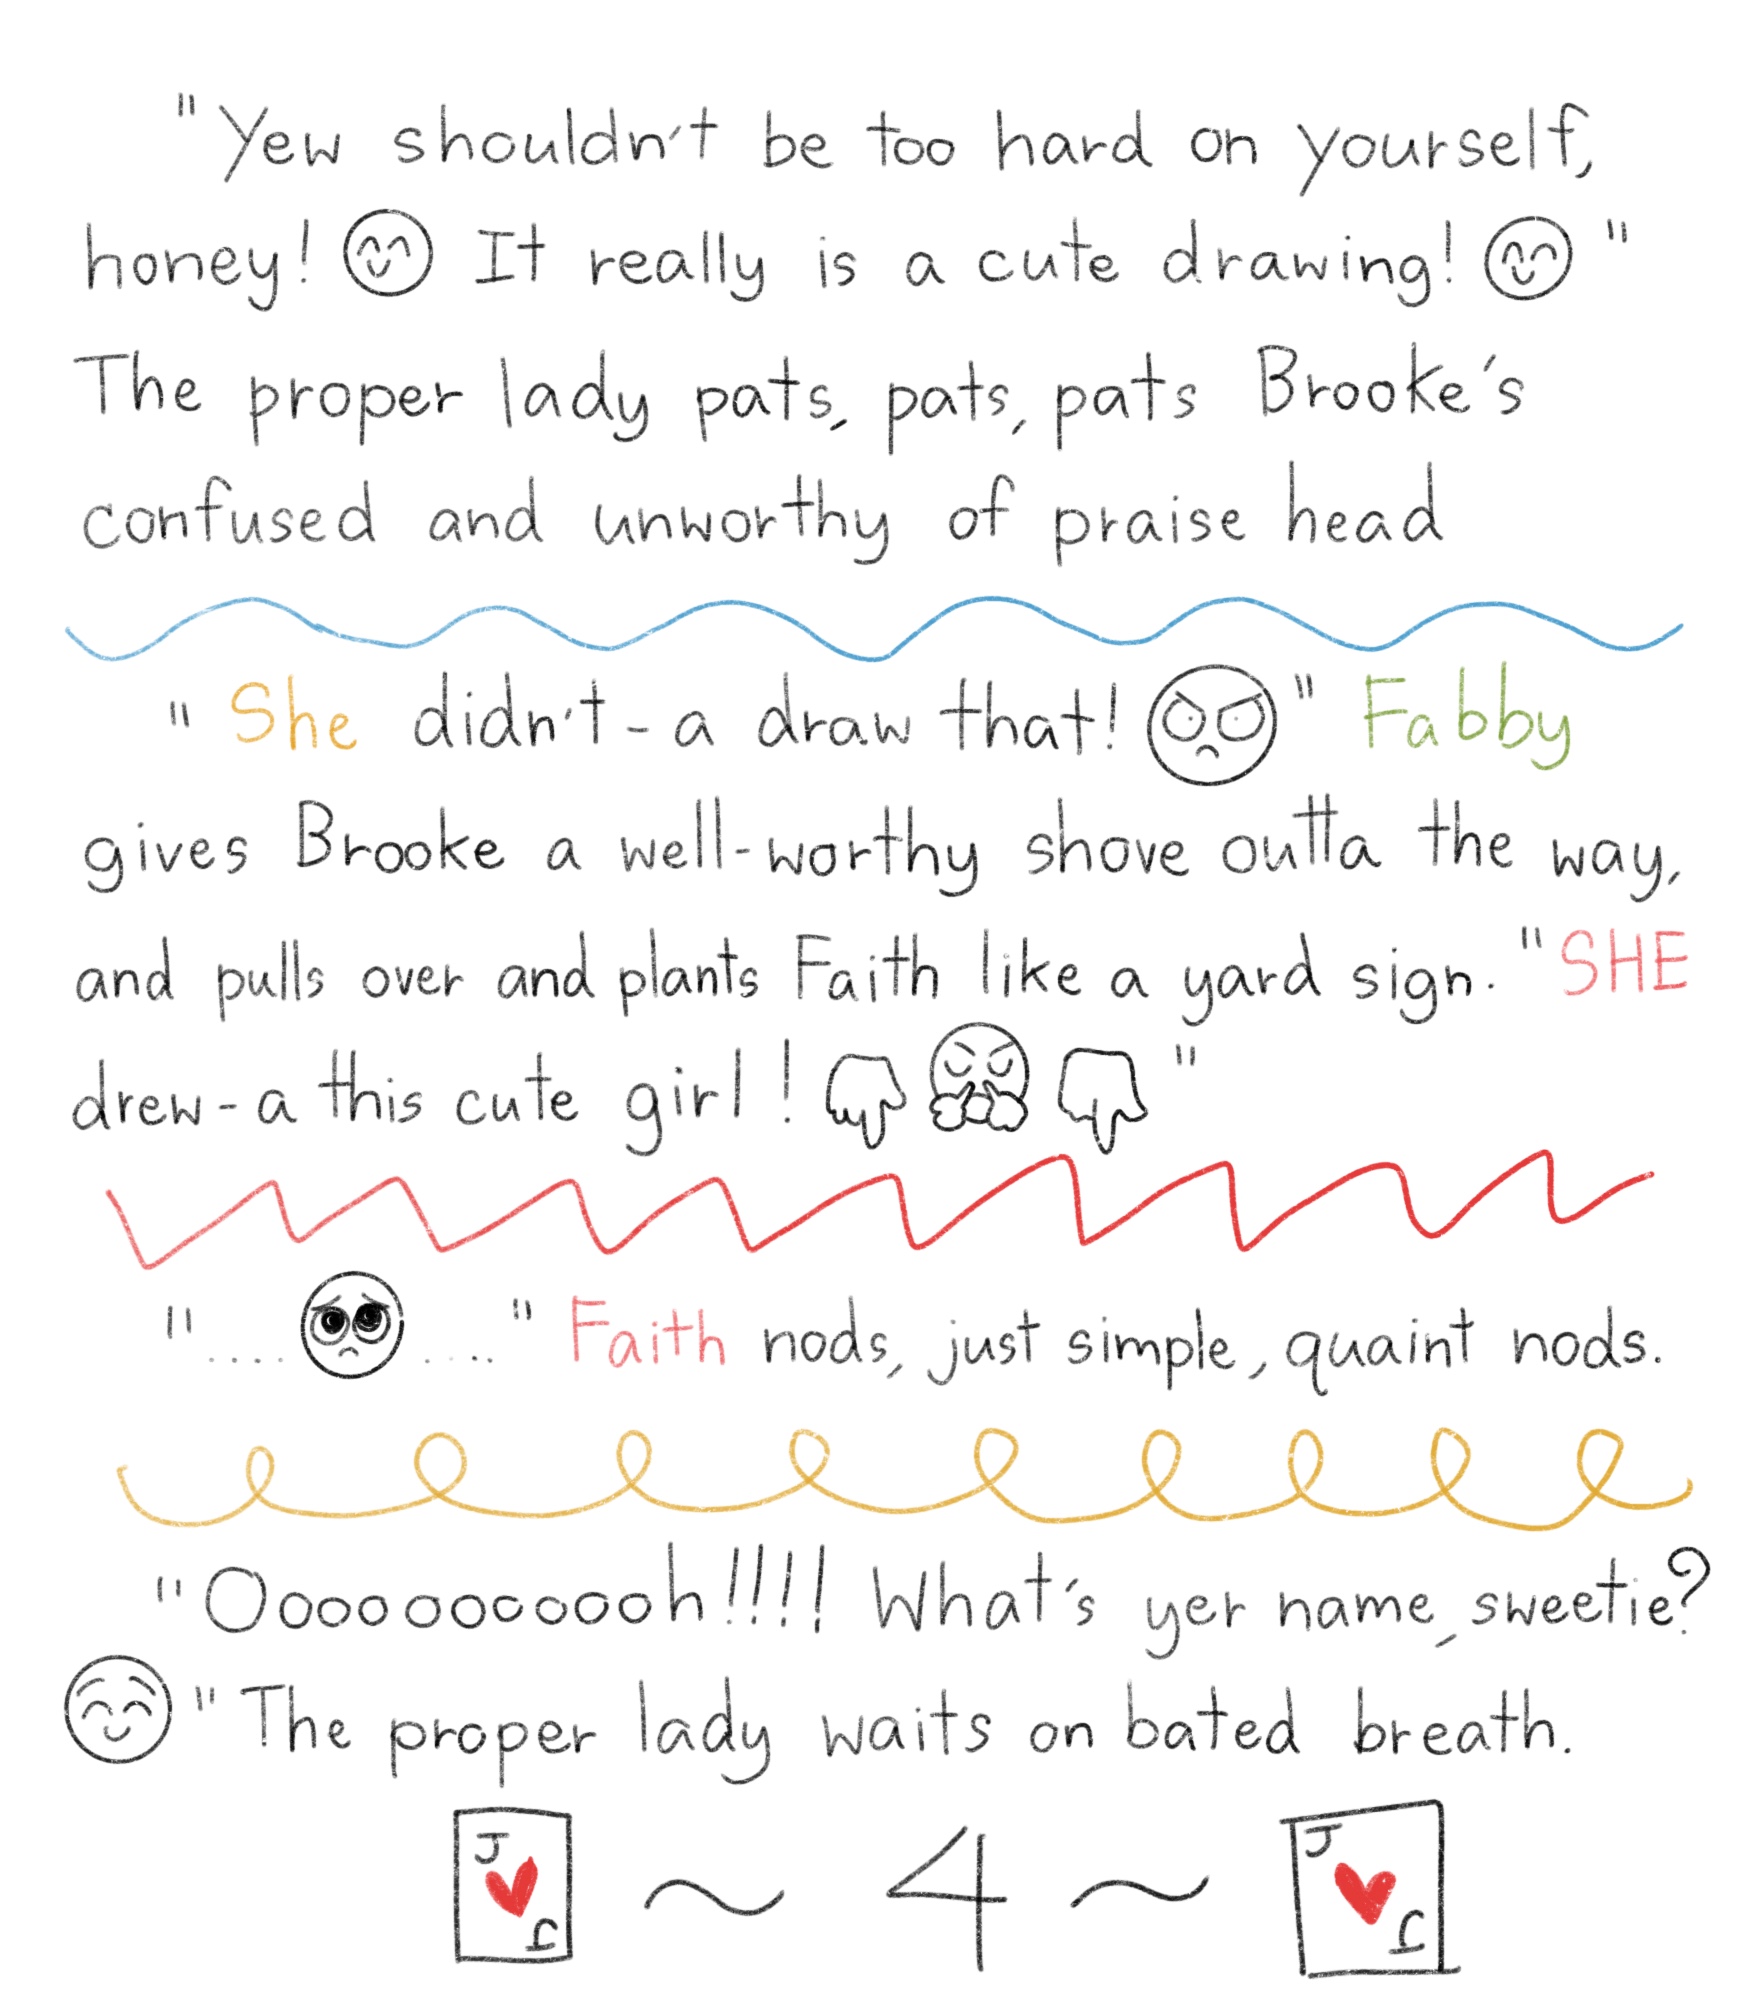 "Yew shouldn't be too hard on yourself,
honey! It really is a cute drawing! "
The proper lady pats, pats, pats Brooke's
confused and unworthy of praise head
"She didn't-a draw that! " Fabby
gives Brooke a well-worthy shove outta the way,
and pulls over and plants Faith like a yard sign. "SHE
drew-a this cute girl! "
".... ...." Faith nods, just simple, quaint nods.
"Oooooooooooh!!!! What's yer name, sweetie?
" The proper lady waits on bated breath.
J J ~ 4 ~ J J